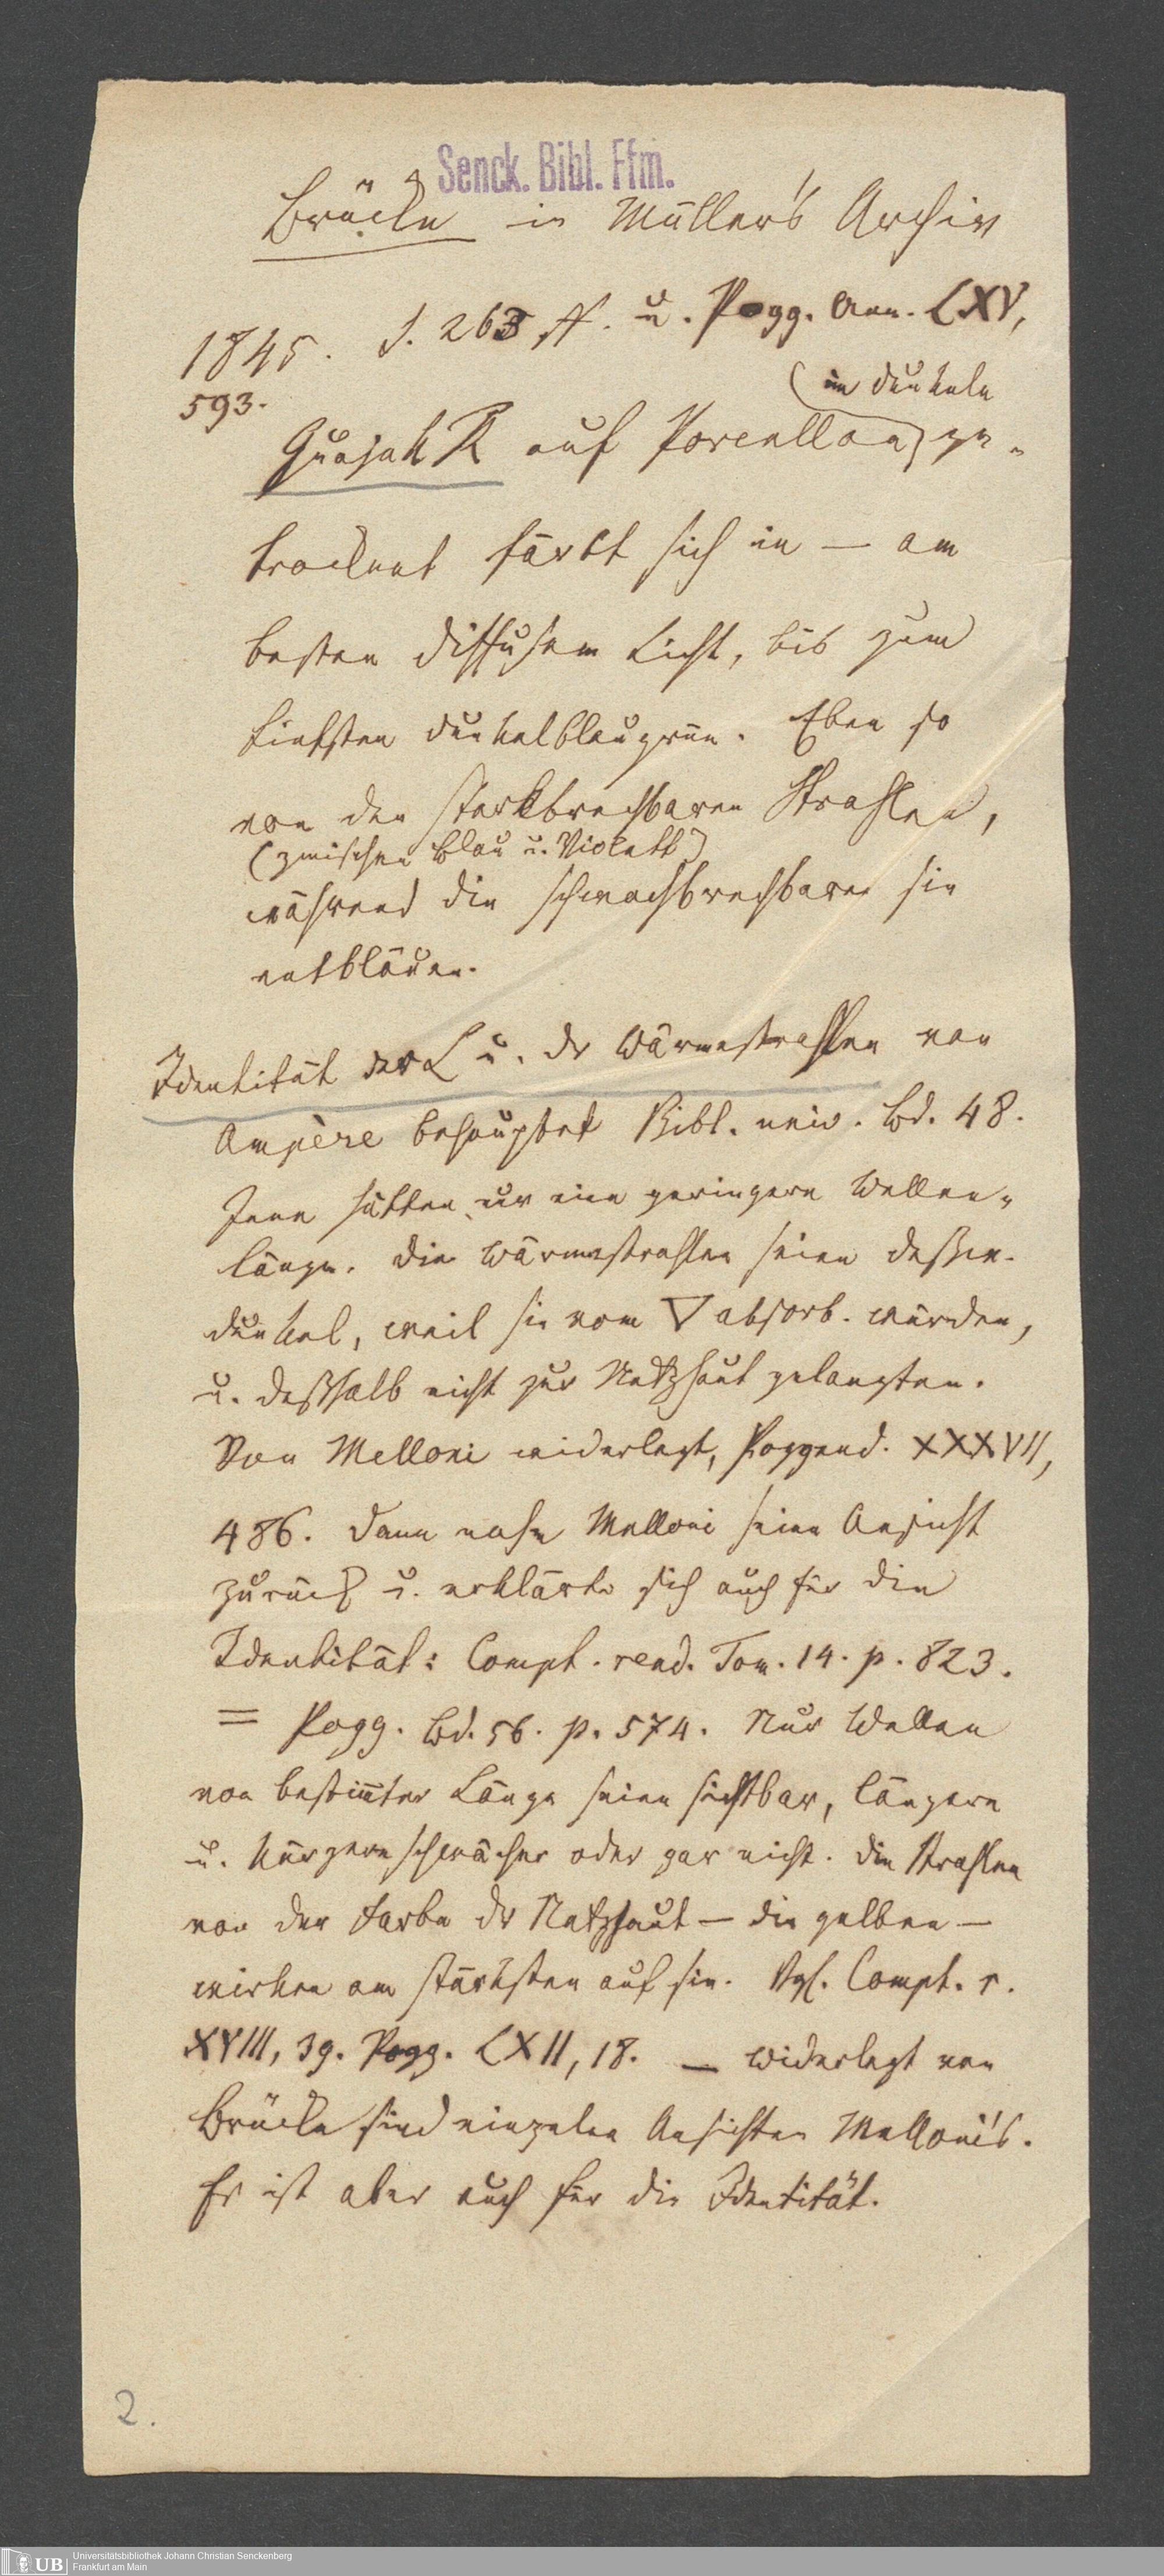 Senck. Bibl. Ffm.
Brücke in Müller's Archiv
1845. S. 263 ff. u. Pogg. Ann. LXV,
593.
(im Dunkeln
Guajak R auf Porcellan) ge-
trocknet färbt sich in — am
besten diffusem Licht, bis zum
tiefsten dunkelblaugrün. Eben so
von den starkbrechbaren Strahlen,
(zwischen Blau u. Violett)
während die schwachbrechbaren sie
entbläuen.
Identität der L u. dr Wärmestrahlen von
Ampère behauptet Bibl. univ. Bd. 48.
Jene hätten nur eine geringere Wellen-
länge. Die Wärmestrahlen seien deßw.
dunkel, weil sie vom ▽ absorb. würden,
u. deßhalb nicht zur Netzhaut gelangten.
Von Melloni widerlegt, Poggend. XXXVII,
486. Dann nahm Melloni seine Ansicht
zurück u. erklärte sich auch für die
Identität: Compt. rend. Tom. 14. p. 823.
= Pogg. Bd. 56. p. 574. Nur Wellen
von bestimter Länge seien sichtbar, längere
u. kürzere schwächer oder gar nicht. Die Strahlen
von der Farbe dr Netzhaut — die gelben —
wirken am stärksten auf sie. Vgl. Compt. r.
XVIII, 39. Pogg. LXII, 18. — Widerlegt von
Brücke sind einzelne Ansichten Melloni's.
Er ist aber auch für die Identität.
2.
UB
Universitätsbibliothek Johann Christian Senckenberg
Frankfurt am Main